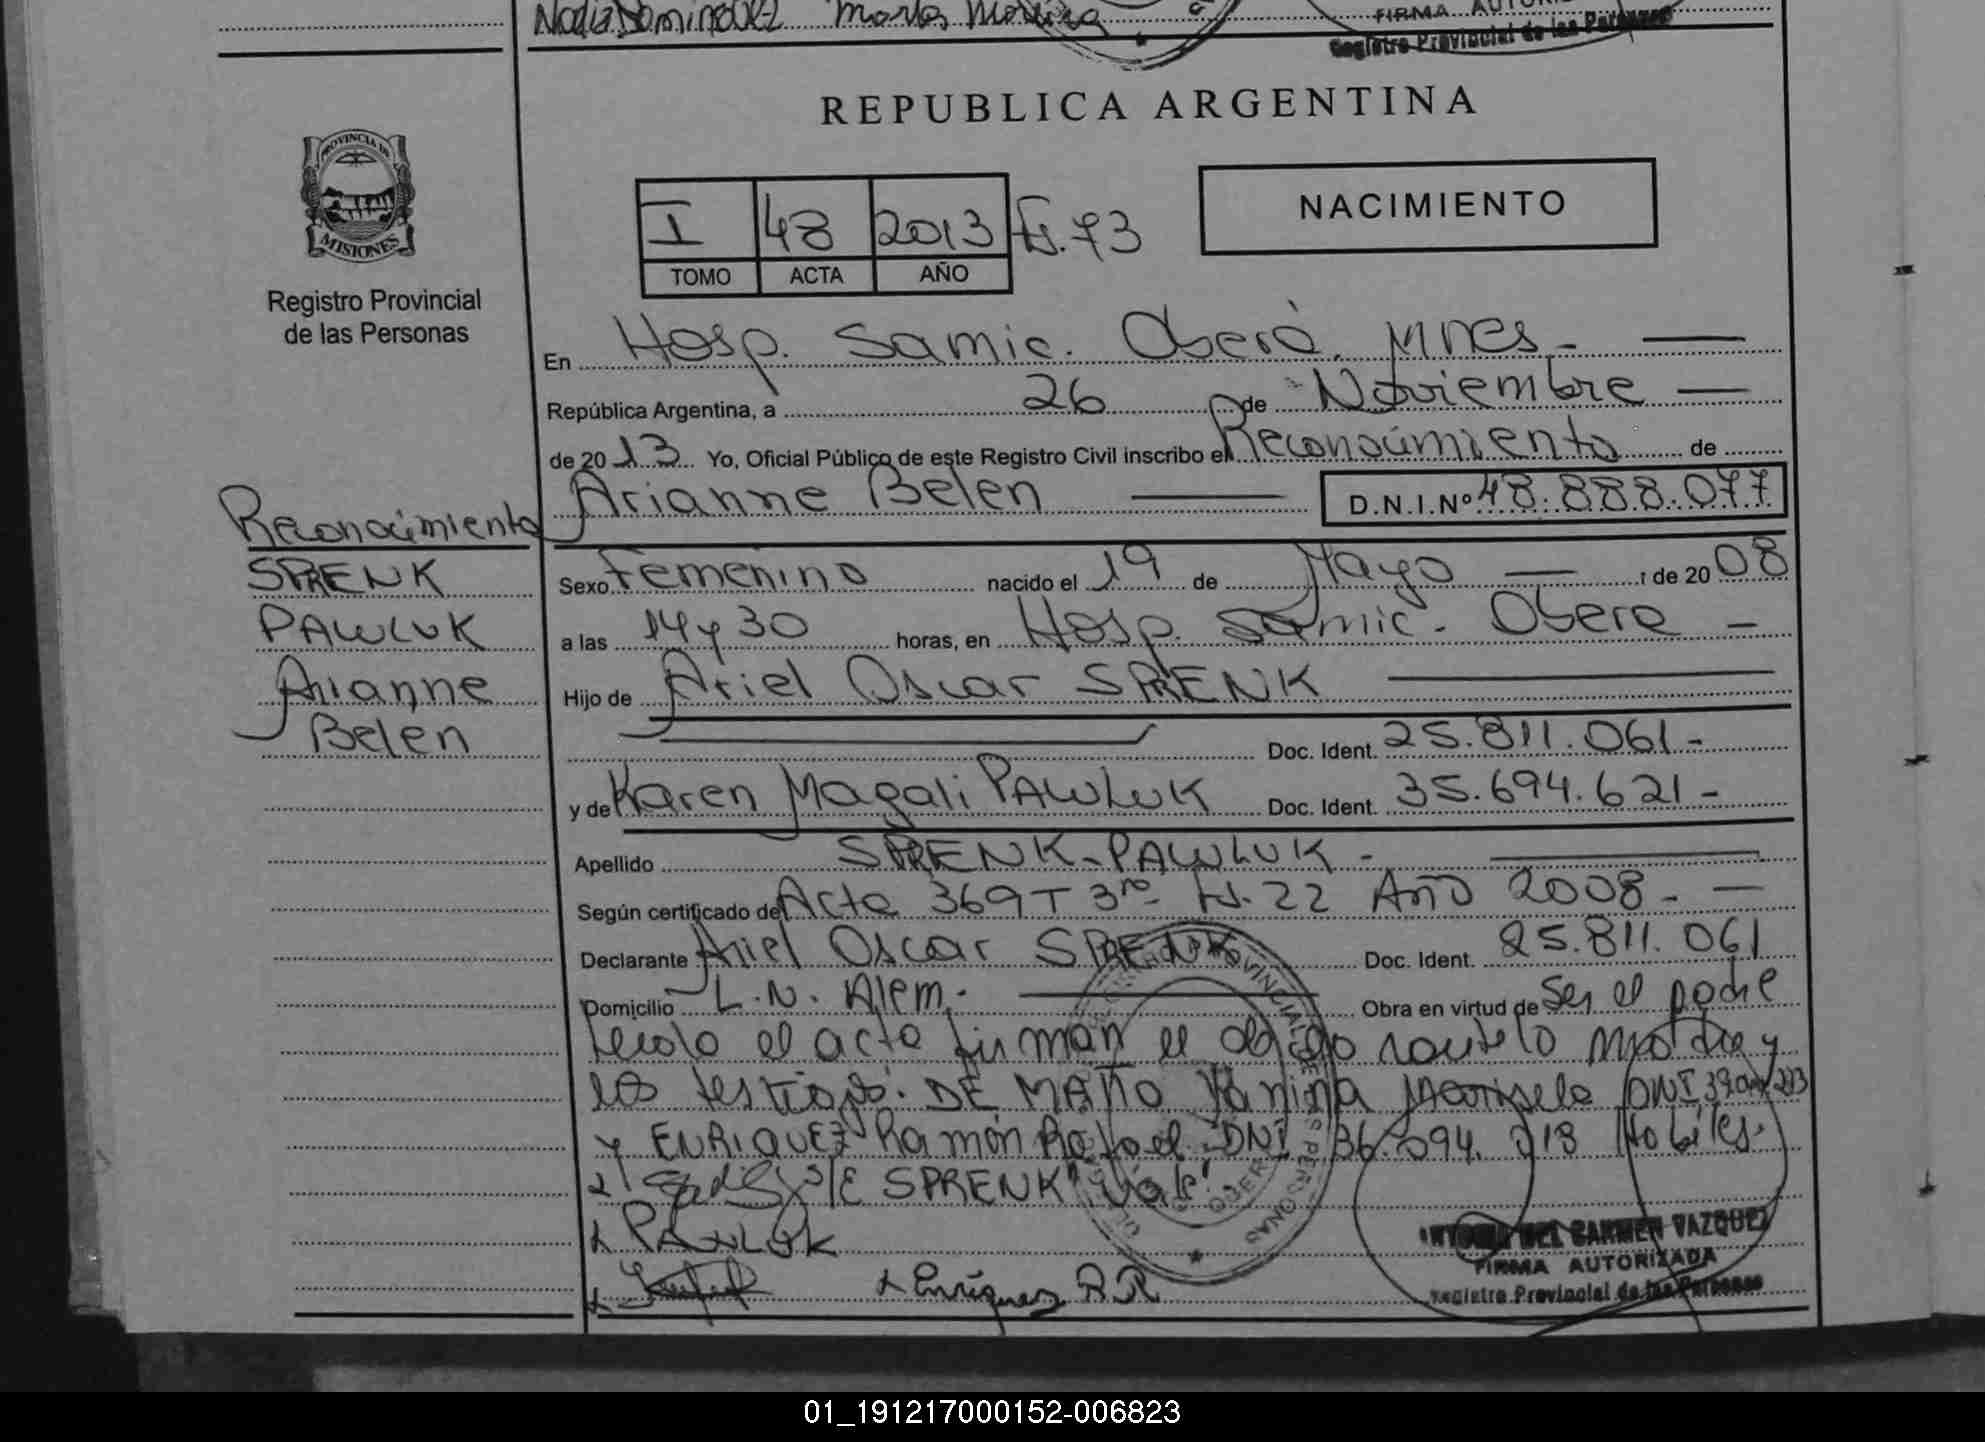 Nadia Dominguez Marta Moreira
FIRMA AUTORI
Registro Provincial de las Personas
REPUBLICA ARGENTINA
PROVINCIA DE
MISIONES
Registro Provincial
de las Personas
I 48 2013 Fs. 73
TOMO ACTA AÑO
NACIMIENTO
En Hosp. Samic. Oberá. Mnes.
República Argentina, a 26 de Noviembre
de 2013 Yo, Oficial Público de este Registro Civil inscribo el Reconocimiento de
Arianne Belen D.N.I.Nº 48.888.077
Reconocimiento
SPRENK
PAWLUK
Arianne
Belén
Sexo Femenino nacido el 19 de Mayo de 2008
a las 14 y 30 horas, en Hosp. Samic. Obera
Hijo de Ariel Oscar SPRENK
Doc. Ident. 25.811.061-
y de Karen Magali PAWLUK Doc. Ident. 35.694.621-
Apellido SPRENK-PAWLUK-
Según certificado de Acta 369 T 3ro Fs. 22 Año 2008-
Declarante Ariel Oscar SPRENK Doc. Ident. 25.811.061
Domicilio L.N. Alem.- Obra en virtud de Ser el padre
Leido el acta firman el madre y
los testigos. DE Yanina Marisela DNI
y ENRIQUEZ Ramón Rafael DNI 36.094.018 Habiles.
S/E SPRENK "Vale".
x PAWLUK
x Enríquez R R
DEL CARMEN VAZQUEZ
FIRMA AUTORIZADA
Registro Provincial de las Personas
01_191217000152-006823